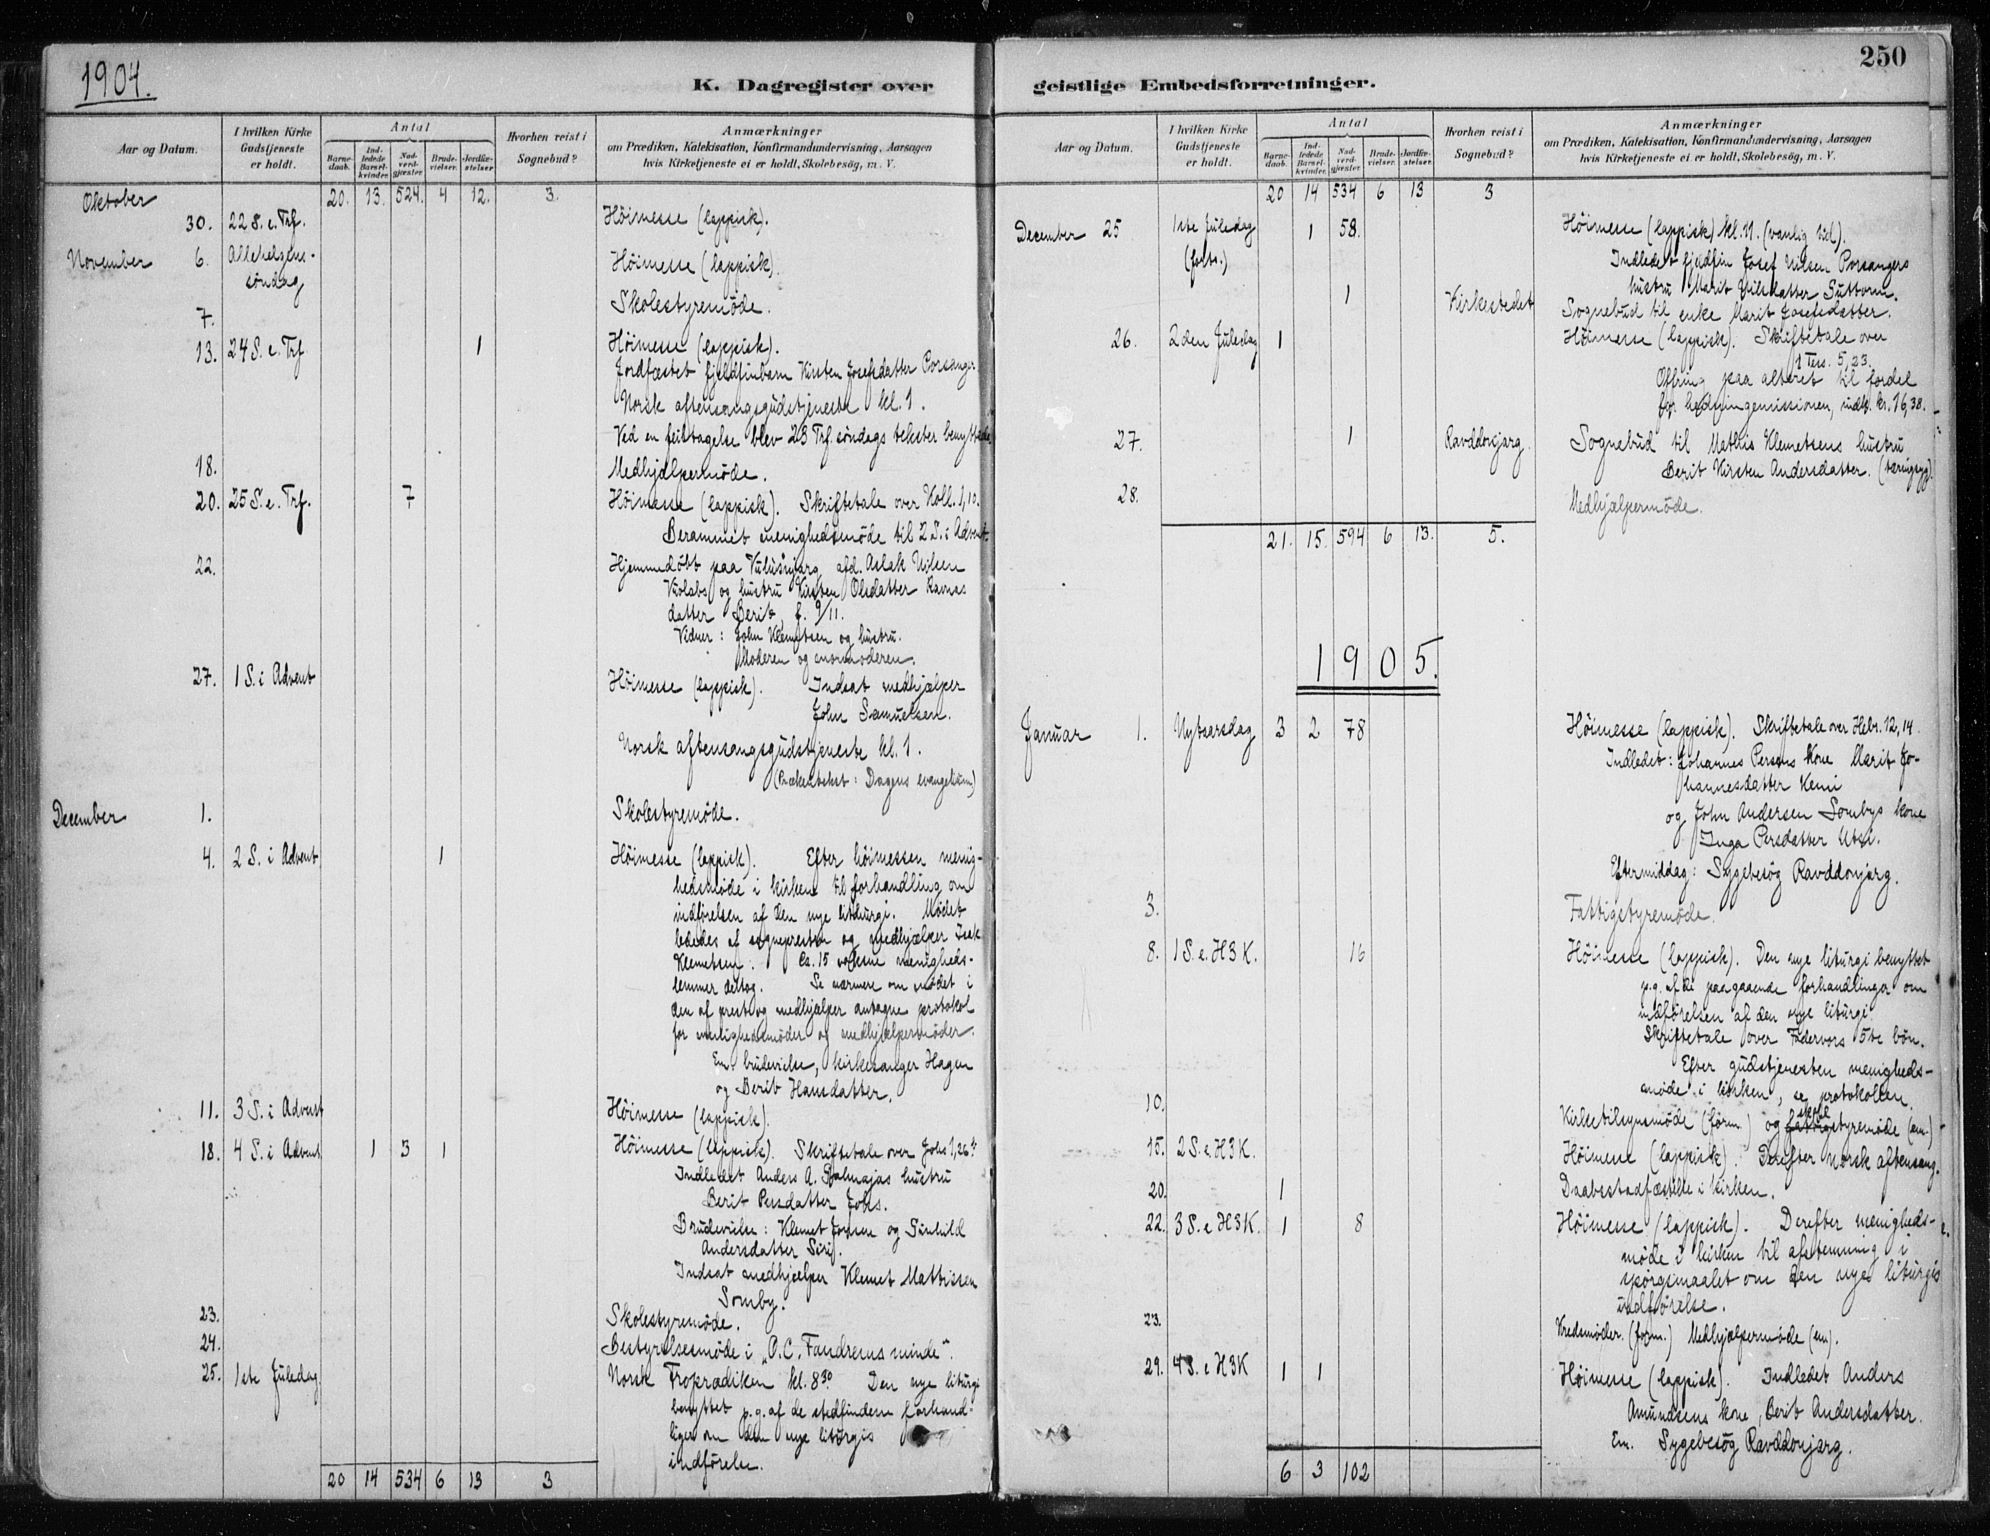 1904.
K. Dagregister over
Aar og Datum.
I hvilken Kirke Gudstjeneste er holdt.
Antal
Barnedaab.
Indledede Barselkvinder.
Nadverdgjæster.
Brudevielser.
Jordfæstelser
Hvorhen reist i Sognebud?
Anmærkninger
om Prædiken, Katekisation, Konfirmandundervisning, Aarsagen
hvis Kirketjeneste ei er holdt, Skolebesøg, m. V.
Oktober 20. 13. 524. 4 12. 3.
30. 22 S. e. Trf. Höimesse (lappisk).
November 6. Allehelgens- Höimesse (lappisk).
söndag
7. Skolestyremöde.
13. 24 S. e. Trf. 1 Höimesse (lappisk).
Jordfæstet fjeldfinbarn Kirsten Josefsdatter Porsanger.
Norsk aftensangsgudstjeneste kl. 1.
Ved en feiltagelse blev 23 Trf. söndags tekster benyttede
18. Medhjælpermöde.
20. 25 S. e. Trf. 7 Höimesse (lappisk). Skriftetale over Koll. 1,10.
Berammet menighedsmöde til 2 S. i Advent.
22. Hjemmedöbt paa afd. Aslak Nilsen
og hustru Kirsten Olsdatter Ravnas
datter Berit, f. 9/11.
Vidner: John Klemetsen og hustru.
Moderen og mormoderen.
27. 1 S. i Advent Höimesse (lappisk). Indsat medhjælper
John Samuelsen.
Norsk aftensangsgudstjeneste kl. 1.
(Prækentekst: Dagens evangelium)
December 1. Skolestyremöde.
4. 2 S. i Advent 1 Höimesse (lappisk). Efter höimessen menig-
hedsmöde i kirken til forhandling om
indförelsen af den nye liturgi. Mödet
lededes af sognepresten og medhjælper Isak
Klemetsen. Ca. 15 voksne menigheds-
lemmer deltog. Se nærmere om mödet i
den af prest og medhjælper antagne protokol
for menighedsmöder og medhjælpermöder.
Em. brudevielse, kirkesanger Hagen
og Berit Hansdatter.
11. 3 S. i Advent Höimesse (lappisk).
18. 4 S. i Advent 1 3 1 Höimesse (lappisk). Skriftetale over Joh. 1,26
Indledet Anders A. hustru
Berit Persdatter
Brudevielse: Klemet Jonsen og Gunhild
Andersdatter Siri.
Indsat medhjælper Klemet Mattissen
Somby.
23. Skolestyremöde.
24. Bestyrelsesmöde i „O. C. Fandrems minde".
25. 1ste Juledag Norsk Froprædiken kl. 8 30 Den nye liturgi
benyttet p. g. af de stedfindene forhand-
liger om den nye liturgis
indförelse.
20 14 534 6 13 3
250
geistlige Embedsforretninger.
Aar og Datum.
I hvilken Kirke Gudstjeneste er holdt.
Antal
Barnedaab.
Indledede Barselkvinder.
Nadverdgjæster.
Brudevielser.
Jordfæstelser.
Hvorhen reist i Sognebud?
Anmærkninger
om Prædiken, Katekisation, Konfirmandundervisning, Aarsagen
hvis Kirketjeneste ei er holdt, Skolebesøg, m. V.
20 14 534 6 13 3
December 25 1ste Juledag 1 58. Höimesse (lappisk) kl. 11. (vanlig tid).
(forts.) Indledet fjeldfin Josef Nilsen Porsangers
hustru Marit Nilsdatter
1 Kirkestedet Sognebud til enke Marit Josefsdatter.
26. 2den Juledag 1 Höimesse (lappisk). Skriftetale over
1 Tess. 5,23.
Ofring paa alteret til fordel
for hedningemissionen, indk. kr. 16,38.
27. 1 Ravddonjarg. Sognebud til Mathis Klemetsens hustru
Berit Kirsten Andersdatter. (tæringsyg)
28. Medhjælpermöde.
21. 15. 594 6 13. 5.
1905.
Januar 1. Nytaarsdag 3 2 78 Höimesse (lappisk). Skriftetale over Hebr. 12,14.
Indledet: Johannes Persens kone Marit Jo-
hannesdatter Kemi
og John Andersen Sombys kone
Inga Persdatter Utsi.
Eftermiddag: Sygebesög Ravddonjarg.
3. Fattigstyremöde.
8. 1 S. e. H3K. 16 Höimesse (lappisk). Den nye liturgi benyttet
p. g. af de paagaaende forhandlinger om
indförelsen af den nye liturgi.
Skriftetale over Fadervors 5te bön.
Efter gudstjenesten menigheds-
möde i kirken, se protokollen.
10. Kirketilsynsmöde (form.) og skolestyremöde (em.)
15. 2 S. e. H3K. Höimesse (lappisk). Derefter norsk aftensang.
20. 1 Daabsstadfæstelse i kirken.
22. 3 S. e H3K. 1 8 Höimesse (lappisk). Derefter menigheds-
möde i kirken til afstemning i
spörgsmaalet om den nye liturgis
indförelse.
23. Kredsmöder. (form.) Medhjælpermöde (em).
29. 4 S. e H3K 1 1 Höimesse (lappisk). Indledet Anders
Amundsens kone, Berit Andersdatter.
Em. Sygebesög Ravddonjarg.
6 3 102